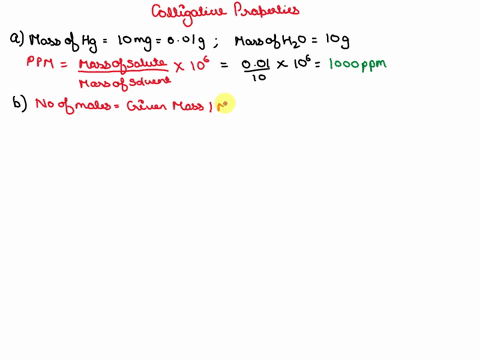 Colligative Properties
a) Mass of Hg = 10mg = 0.01g ; Mass of H2O = 10g
PPM = Mass of Solute / Mass of Solvent × 10⁶ = 0.01 / 10 × 10⁶ = 1000ppm
b) No of moles = Given Mass /